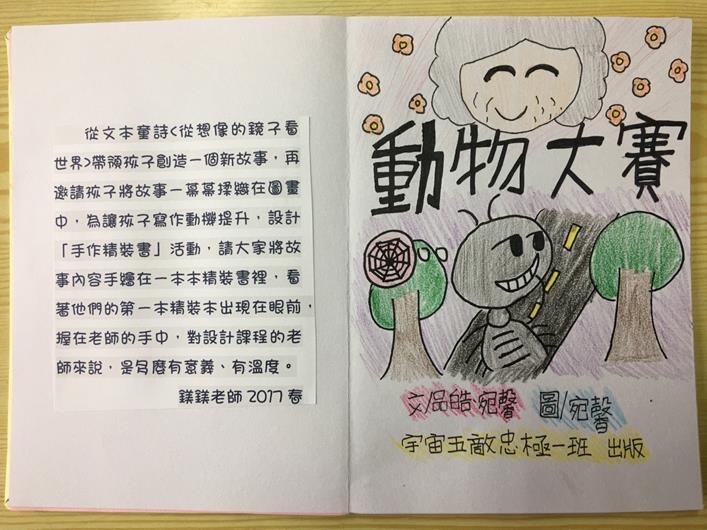 從文本童詩<從想像的鏡子看
世界>帶領孩子創造一個新故事，再
邀請孩子將故事一幕幕揉織在圖畫
中，為讓孩子寫作動機提升，設計
「手作精裝書」活動，請大家將故
事內容手繪在一本本精裝書裡，看
著他們的第一本精裝本出現在眼前，
握在老師的手中，對設計課程的老
師來說，是多麼有意義、有溫度。
鎂鎂老師 2017 春
動物大賽
文/品皓·宛馨 圖/宛馨
宇宙五敵忠極一班 出版